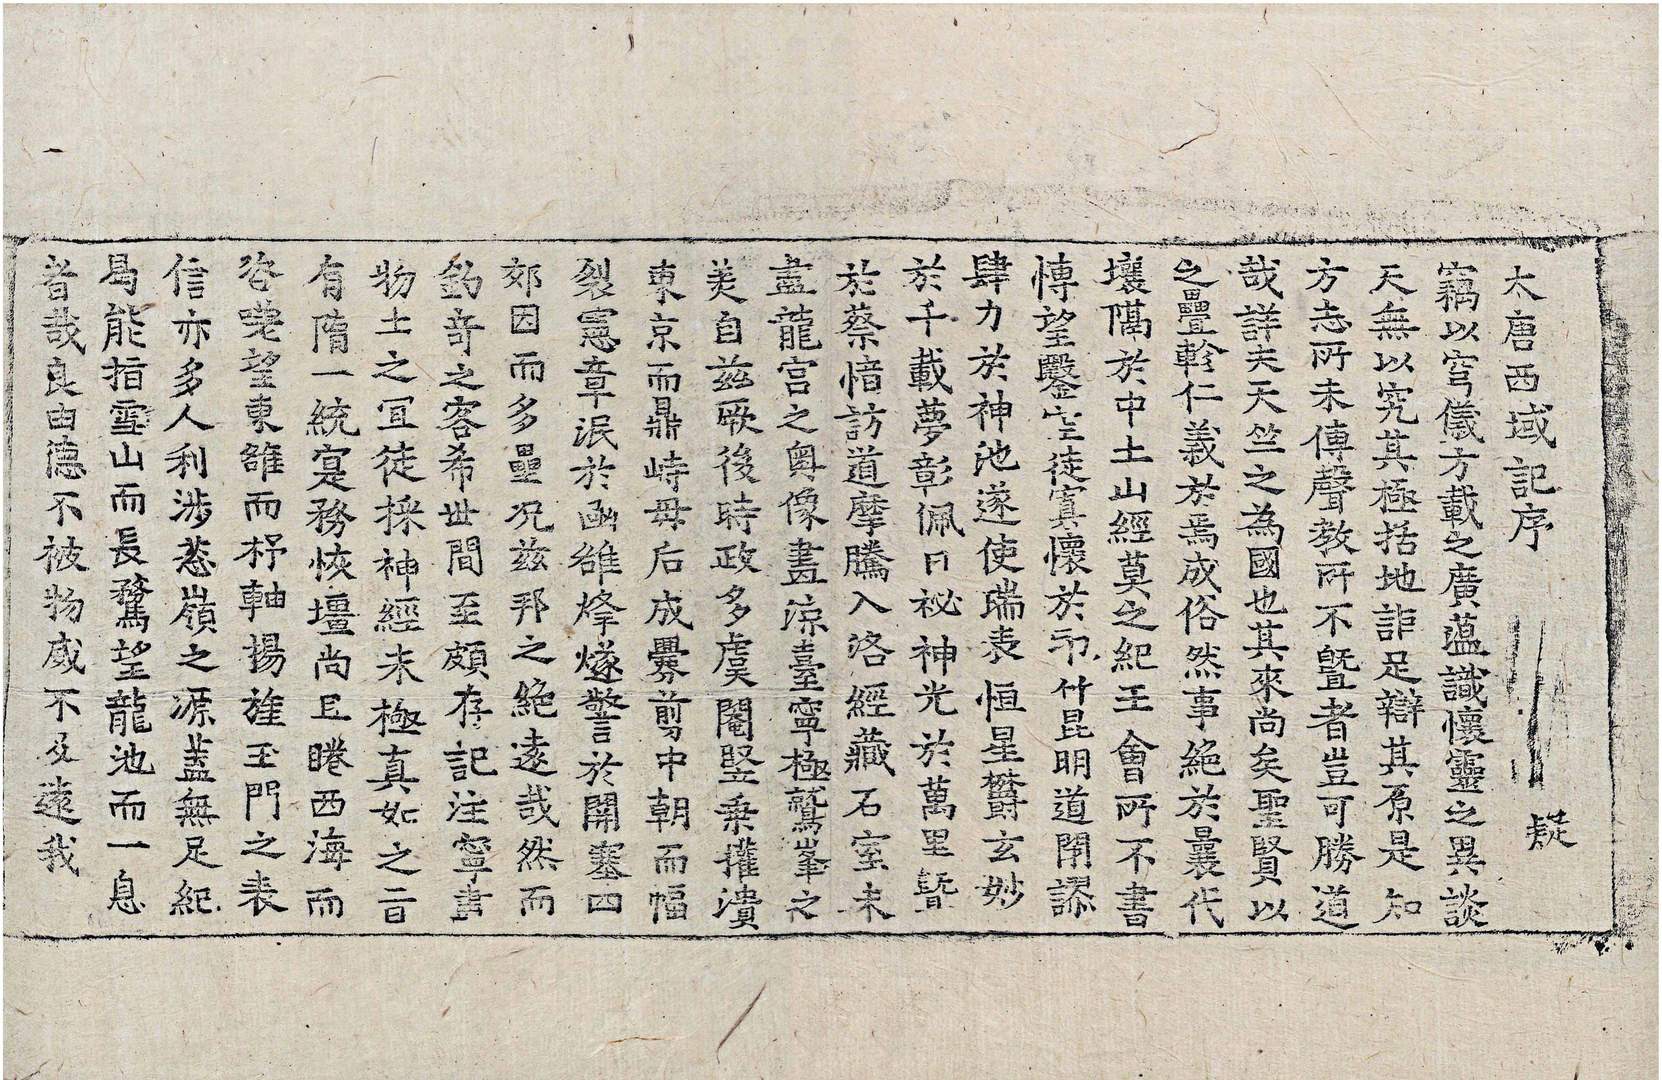 大唐西域記序 疑
竊以穹儀方載之廣蘊識懷靈之異談
天無以究其極括地詎足辯其原是知
方志所未傳聲教所不曁者豈可勝道
哉詳夫天竺之為國也其來尚矣聖賢以
之疊軫仁義於焉成俗然事絕於曩代
壤隔於中土山經莫之紀王會所不書
博望鑿空徒寘懷於卭竹昆明道閉謬
肆力於神池遂使瑞表恒星欝玄妙
於千載夢彰佩日祕神光於萬里曁
於蔡愔訪道摩騰入洛經藏石室未
盡龍宮之奧像畫涼臺寧極鷲峯之
美自茲厥後時政多虞閹竪乗權潰
東京而鼎峙母后成釁剪中朝而幅
裂憲章泯於函雒烽燧警於開塞四
郊因而多壘况茲邦之絕遠哉然而
釣竒之客希世間至頗存記注寧書
物土之冝徒採神經未極真如之旨
有隋一統寔務恢壃尚且睠西海而
咨嗟望東雒而杼軸揚旌玉門之表
信亦多人利涉葱嶺之源盖無足紀
曷能指雪山而長騖望龍池而一息
者哉良由德不被物威不及遠我